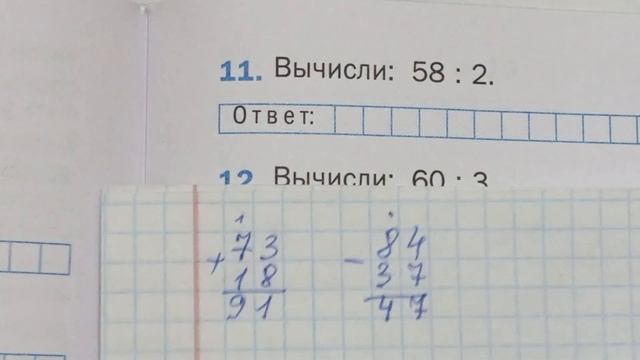 11. Вычисли: 58 : 2.
Ответ:
12. Вычисли: 60 : 3
1
+ 73
18
91
- 84
37
47